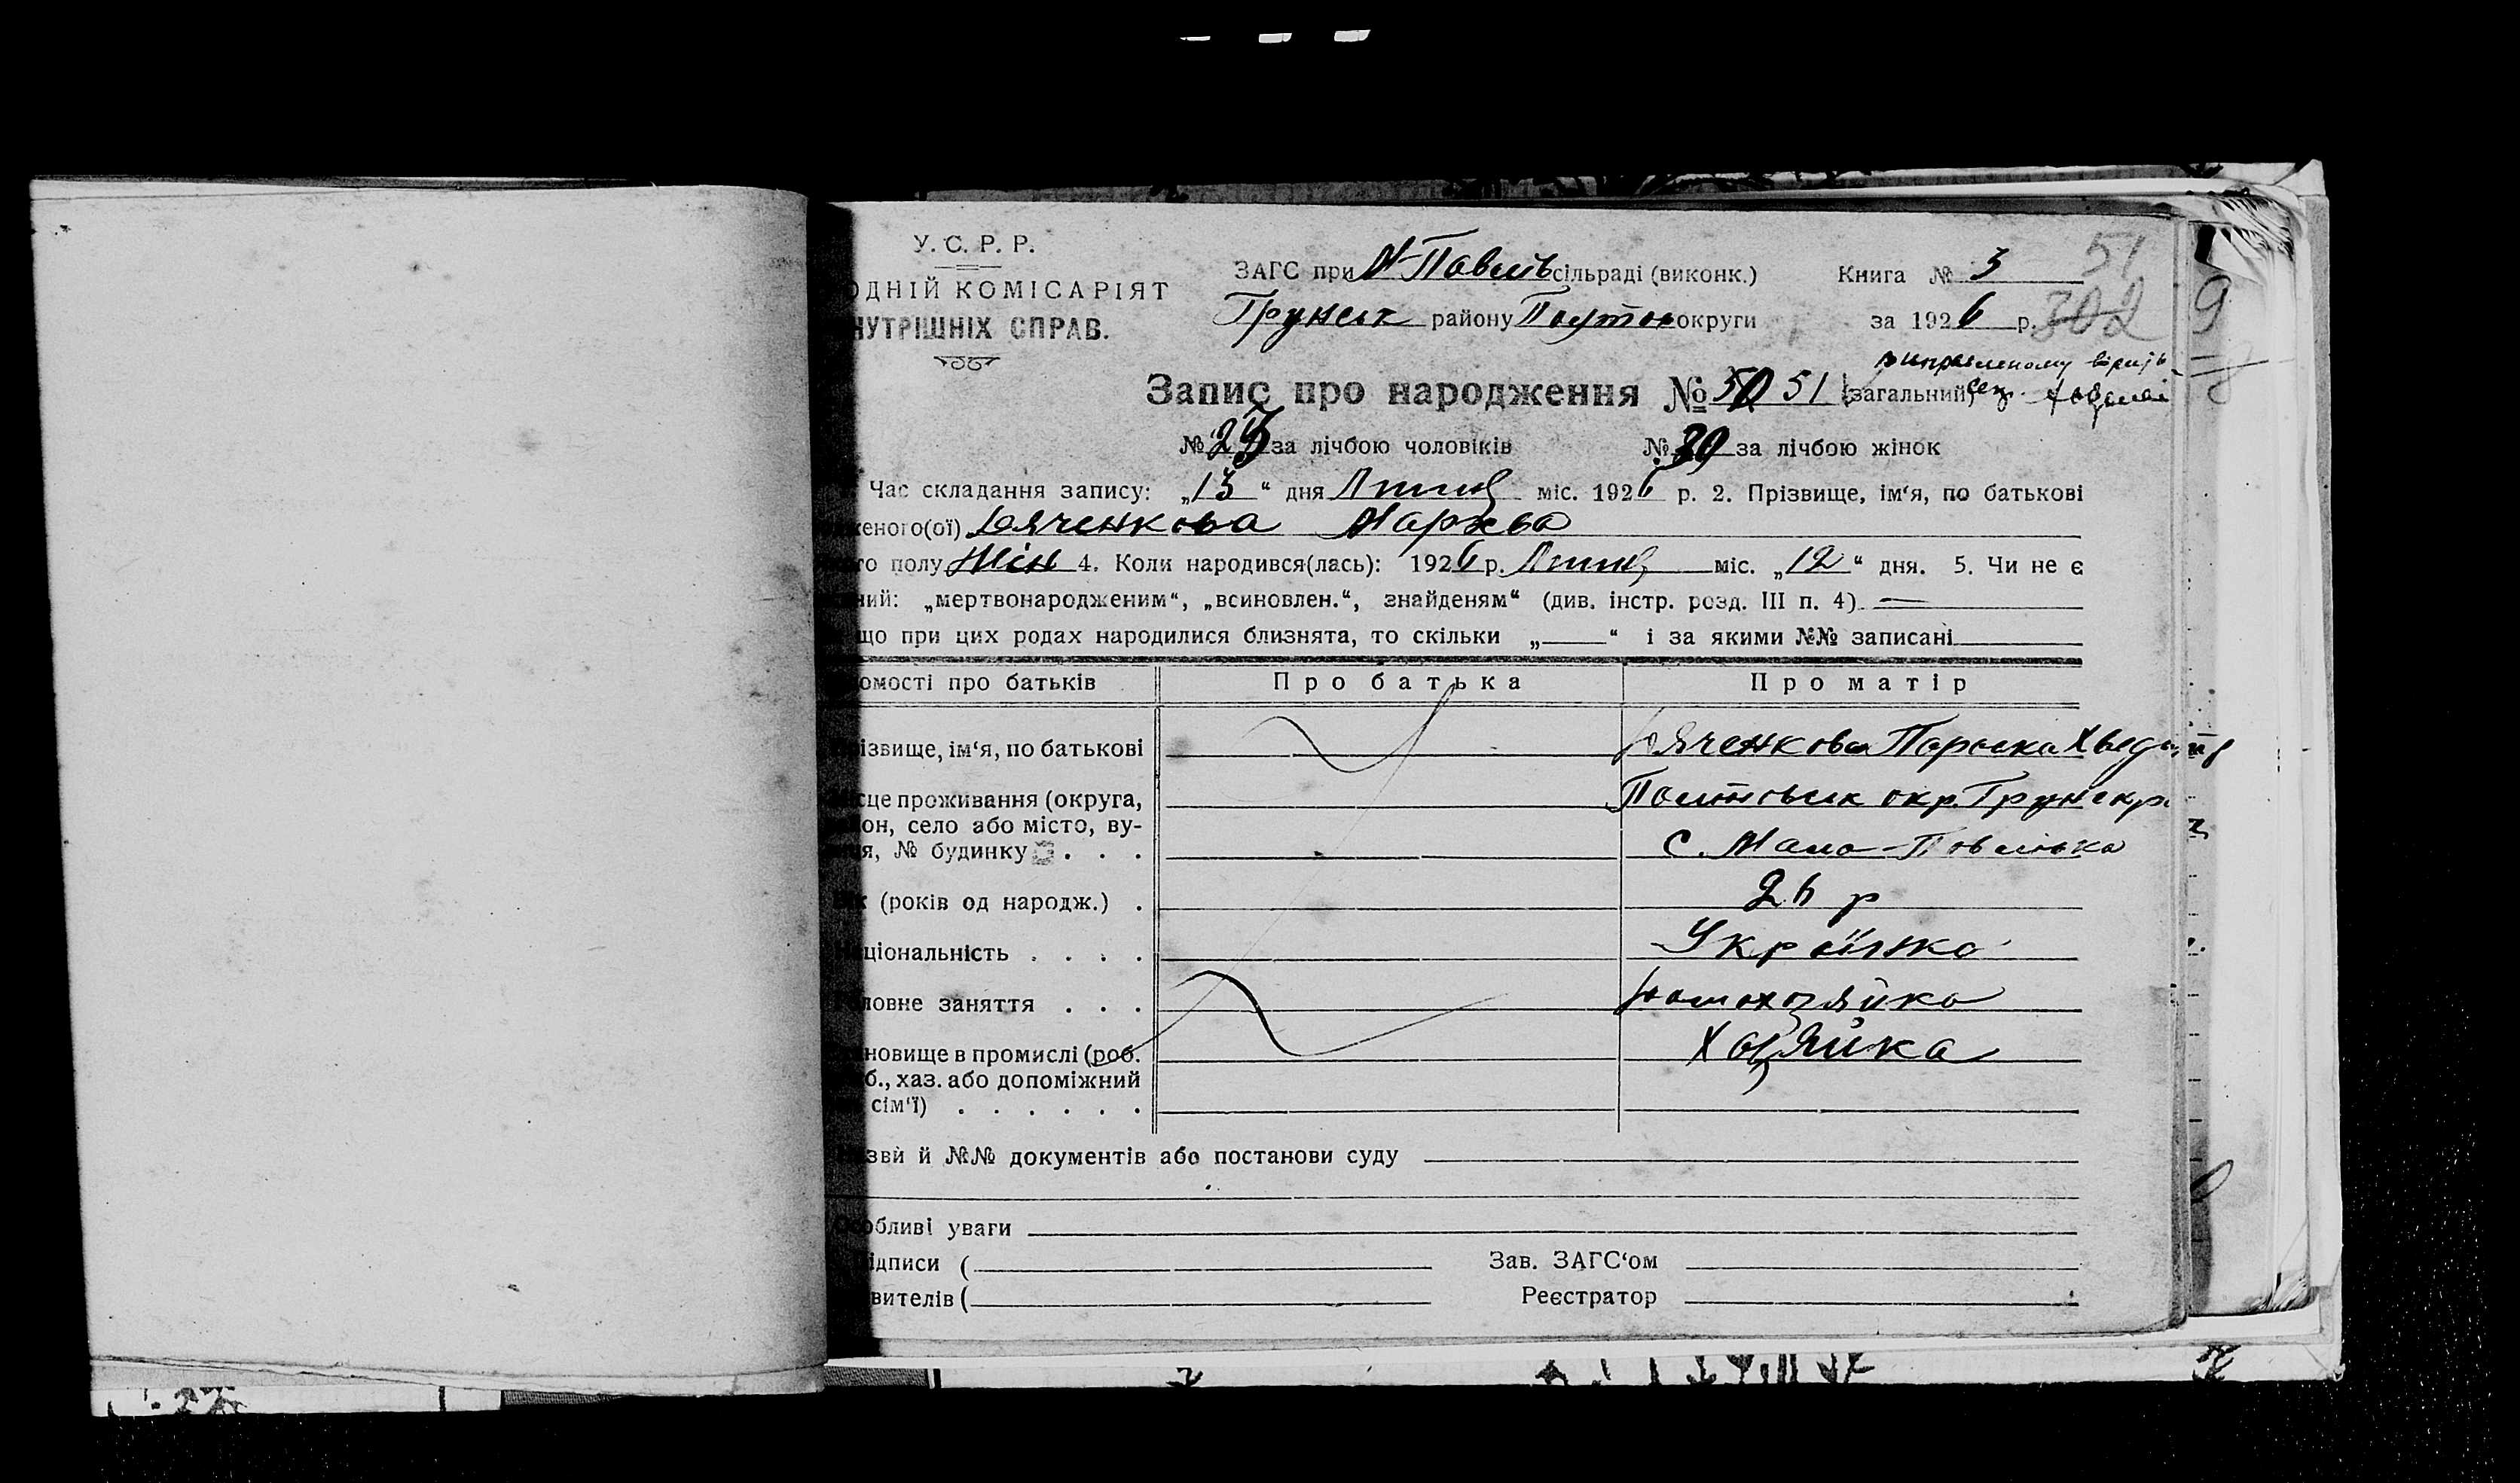 У. С. Р. Р.
ОДНІЙ КОМІСАРІЯТ
НУТРІШНІХ СПРАВ.
ЗАГС при М-Павлів сільраді (виконк.)
Книга № 3
51
Грунськ району Полтав округи
за 1926 р.
302
виправленому вірить
Запис про народження № 50 51 (загальний)
№ 23 за лічбою чоловіків № 30 за лічбою жінок
Час складання запису: „13“ дня Липня міс. 1926 р. 2. Прізвище, ім'я, по батькові
женого(ої) Дяченкова Мархва
го полу Жін 4. Коли народився(лась): 1926 р. Липня міс. „12“ дня. 5. Чи не є
ний: „мертвонародженим“, „всиновлен.“, знайденям“ (див. інстр. розд. III п. 4) —
що при цих родах народилися близнята, то скільки „ “ і за якими №№ записані
омості про батьків Про батька Про матір
різвище, ім'я, по батькові Дяченкова Параска
сце проживання (округа, Полтавськ окр. Грунськ р.
он, село або місто, ву-
я, № будинку . . . с. Мало-Павлівка
к (років од народж.) . 26 р
ціональність . . . . Українка
ловне заняття . . . Домохазяйка
новище в промислі (роб. Хазяйка
б., хаз. або допоміжний
сім'ї) . . . . . .
зви й №№ документів або постанови суду
обливі уваги
ідписи ( Зав. ЗАГС'ом
вителів ( Реєстратор